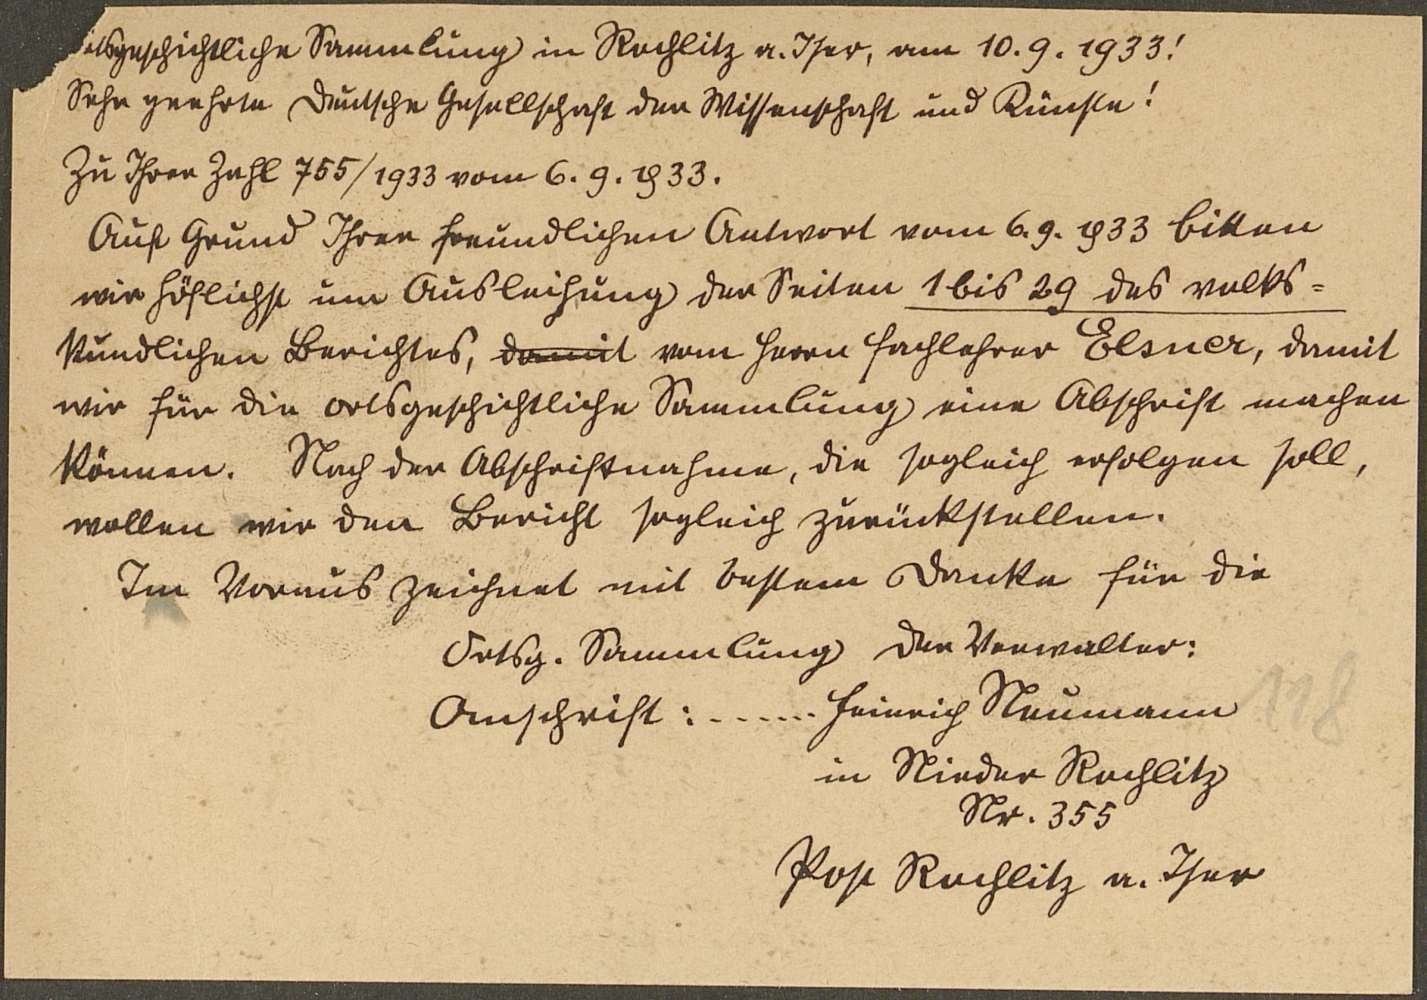 Ortsgeschichtliche Sammlung in Rochlitz a. Iser, am 10. 9. 1933!
Sehr geehrte Deutsche Gesellschaft der Wissenschaft und Künste!
Zu Ihrer Zahl 755/1933 vom 6. 9. 1933.
Auf Grund Ihrer freundlichen Antwort vom 6. 9. 1933 bitten
wir höflichst um Ausleihung der Seiten 1 bis 29 des volks=
kundlichen Berichtes, damit vom Herrn Fachlehrer Elsner, damit
wir für die ortsgeschichtliche Sammlung eine Abschrift machen
können. Nach der Abschriftnahme, die sogleich erfolgen soll,
wollen wir den Bericht sogleich zurückstellen.
Im Voraus zeichnet mit bestem Danke für die
Ortsg. Sammlung der Verwalter:
Anschrift: ...... Heinrich Neumann
118
in Nieder Rochlitz
Nr. 355
Post Rochlitz a. Iser